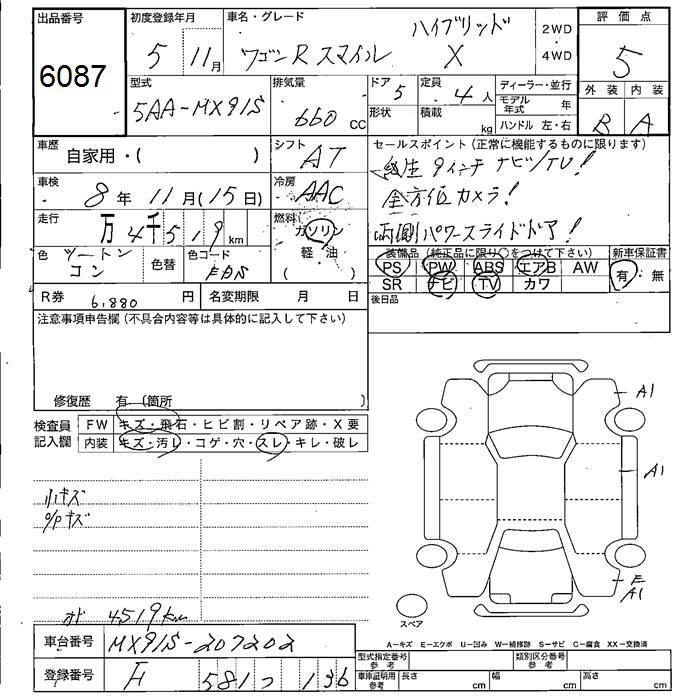 出品番号
6087
初度登録年月
5 11月
車名・グレード
ハイブリッド
ワゴンR スマイル X
2WD
4WD
評価点
5
外装 内装
B A
型式
5AA-MX91S
排気量
660 cc
ドア 5
形状
定員 4人
積載 kg
ディーラー・並行
モデル年式 年
ハンドル 左・右
車歴
自家用・( )
シフト AT
車検
8年 11月(15日)
冷房 AAC
走行
万 4千 5 1 9 km
燃料
ガソリン
軽・油
( )
色 ツートン
コン
色替
色コード
R券 6,880 円
名変期限 月 日
セールスポイント(正常に機能するものに限ります)
純生 9インチ ナビ/TV!
全方位カメラ!
両側パワースライドドア!
装備品(純正品に限り○をつけて下さい)
新車保証書
PS PW ABS エアB AW
有・無
SR ナビ TV カワ
後日品
注意事項申告欄(不具合内容等は具体的に記入して下さい)
修復歴 有 (箇所
検査員
記入欄
FW キズ・飛石・ヒビ割・リペア跡・X要
内装 キズ・汚レ・コゲ・穴・スレ・キレ・破レ
小キズ
O/Pキズ
オド 4519km
A1
A1
E
A1
スペア
A-キズ E-エクボ U-凹み W-補修跡 S-サビ C-腐食 XX-交換済
車台番号 MX91S-207202
登録番号
581 つ 136
型式指定番号
参考
類別区分番号
参考
車庫証明用
参考
長さ cm
幅 cm
高さ cm